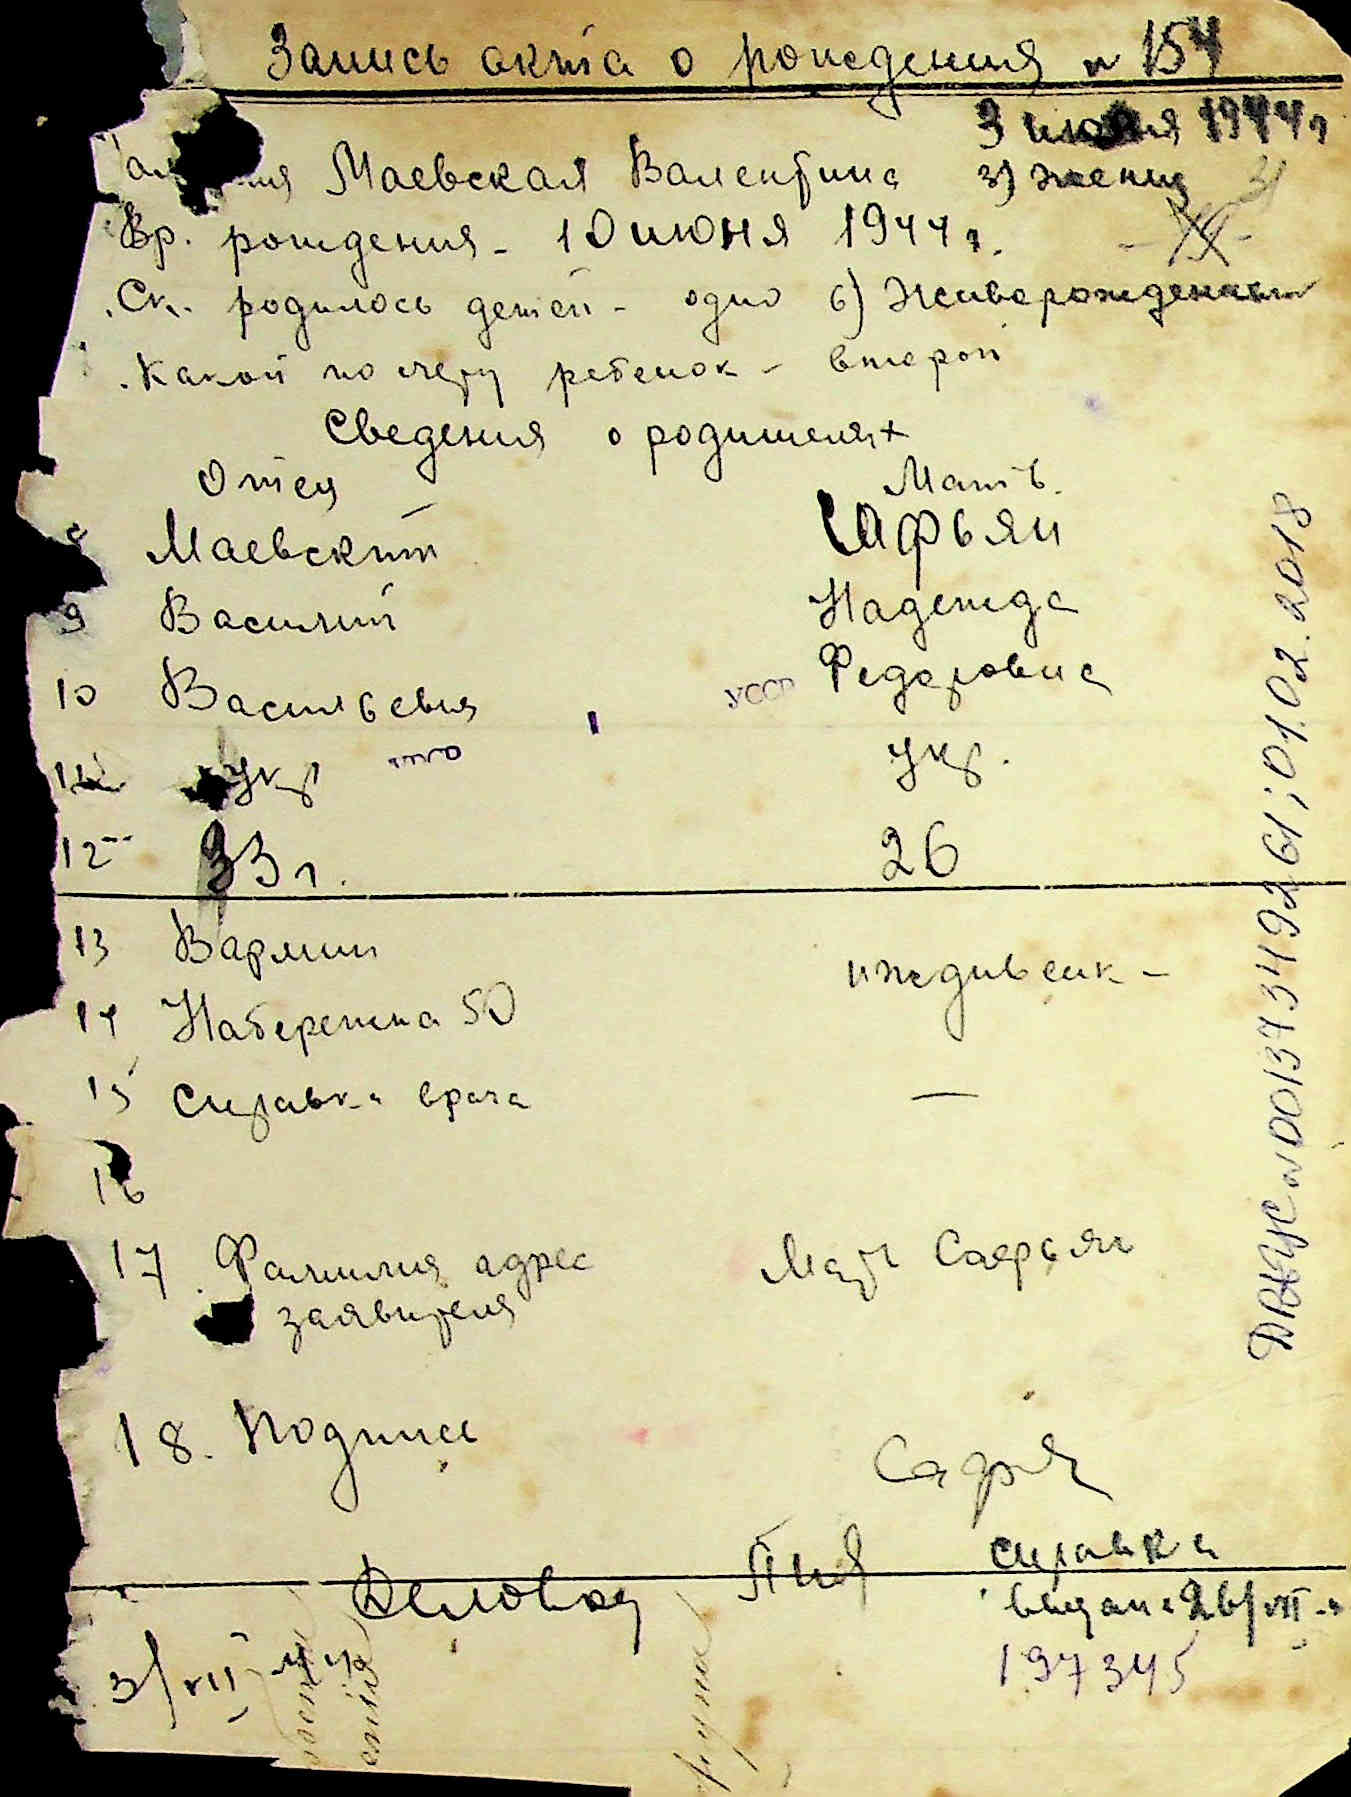 Запись акта о рождения № 154
3 июля 1944 г
Маевская Валентина 3) женщ
Вр. рождения - 10 июня 1944 г.
Ск. родилось детей - одно 6) Живорожденным
Какой по счету ребенок - второй
Сведения о родителях
Отец Мать
8 Маевский Сафьян
9 Василий Надежда
10 Васильевич УССР Федоровна
11 укр укр.
12 33 г. 26
13 В армии иждивенк -
14 Набережна 50
15 Справка врача —
16
17. Фамилия адрес Мать Сафьян
заявителя
18. Подпись Сафья
справка
выдана 26/VII
3/VII 44 197345
ДРАЦС № 00137349261; 01.02.2018